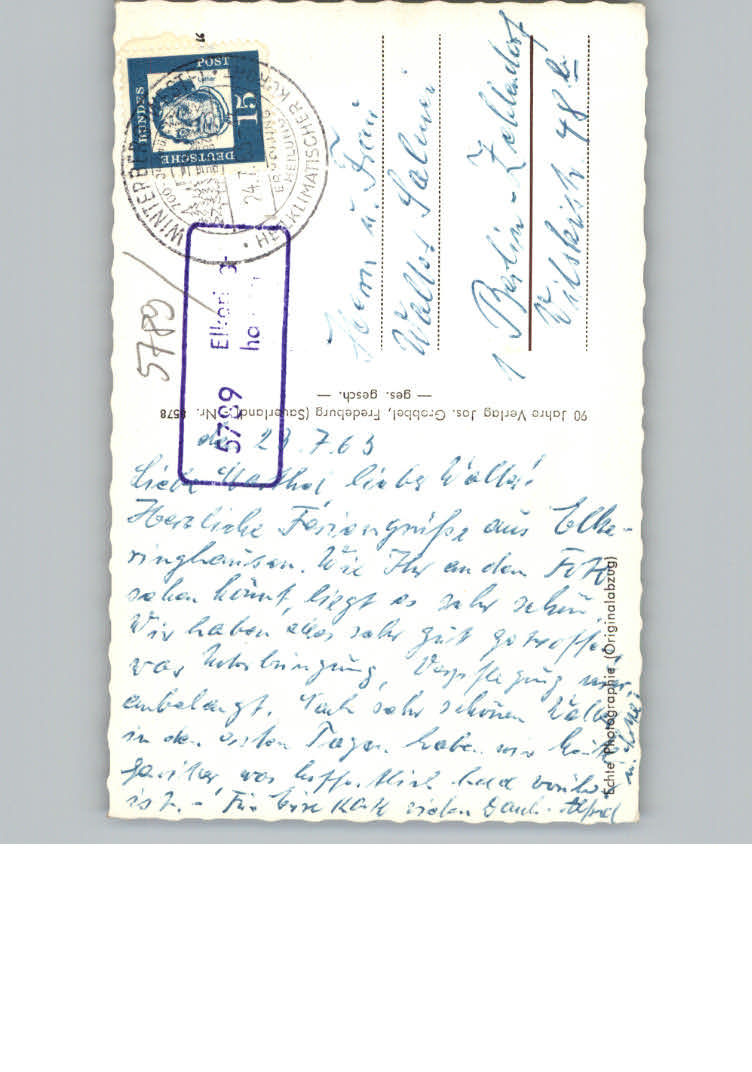 DEUTSCHE BUNDESPOST
15
WINTERBERG
24.7.
HEILKLIMATISCHER KURORT
ERHOLUNG
HEILUNG
5789
5789 Elkering-
hausen
Herrn u. Frau
Walter
1 Berlin-Zehlendorf
48 b
90 Jahre Verlag Jos. Grobbel, Fredeburg (Sauerland) Nr. 8578
— ges. gesch. —
Echte Photographie (Originalabzug)
den 23.7.63
Liebe Martha, lieber Walter!
Herzliche Feriengrüße aus Elke-
ringhausen. Wie Ihr an dem Foto
sehen könnt, liegt es sehr schön.
Wir haben es sehr gut getroffen,
was Unterbringung, Verpflegung usw.
anbelangt. Nach sehr schönem Wetter
in den ersten Tagen haben wir heute
Gewitter was hoffentlich bald vorüber
ist. - Für Eure Karte vielen Dank. Alfred